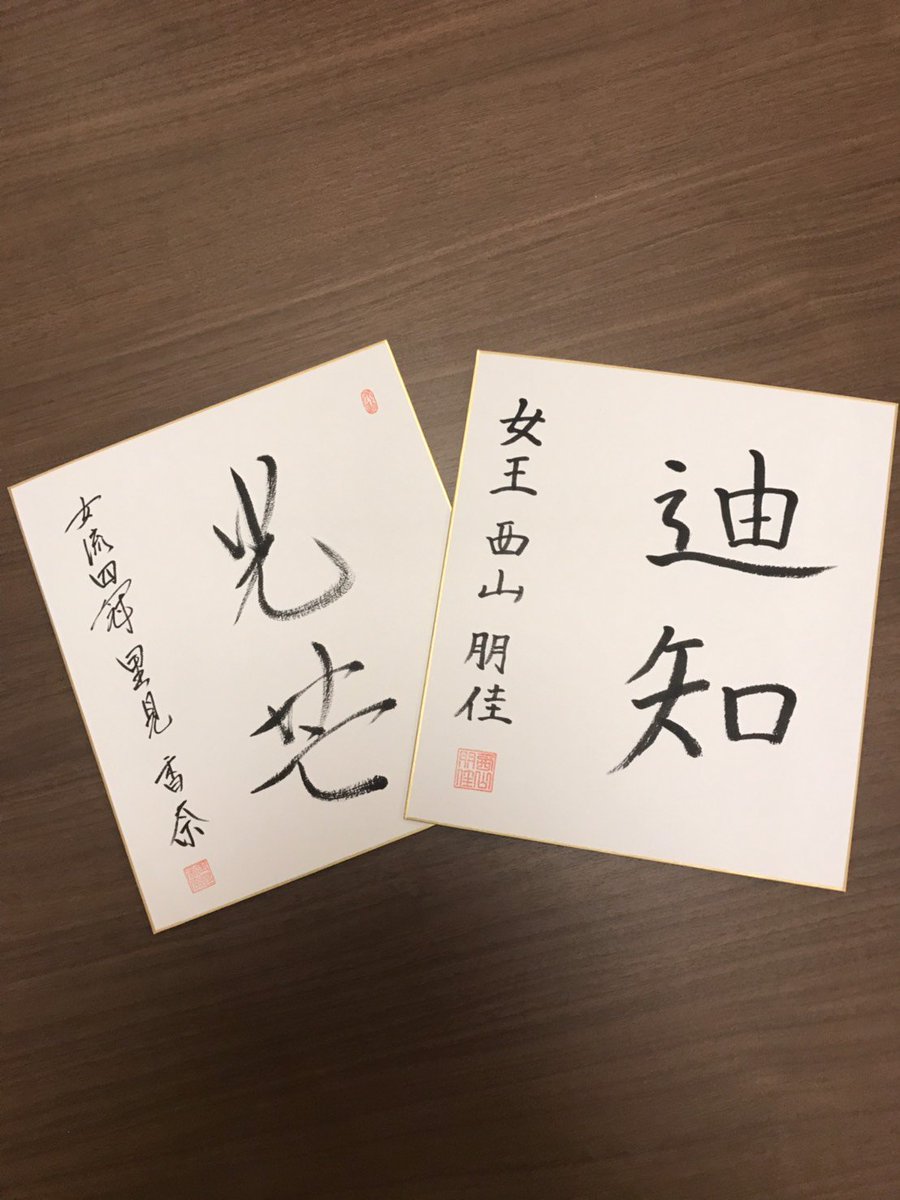 光芒
女流四冠 里見 香奈
迪知
女王 西山 朋佳
西山朋佳